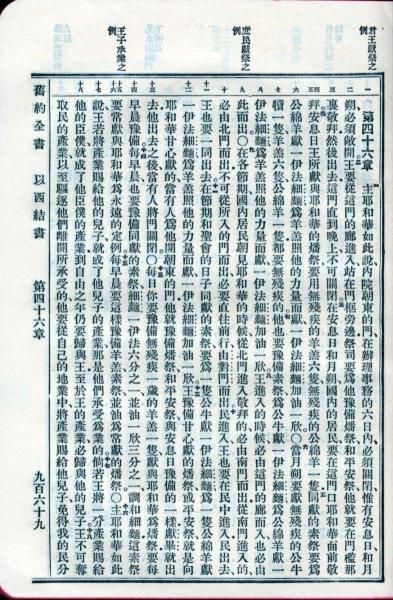 君王獻祭之
例
庶民獻祭之
例
王子承業之
例
一 第四十六章 主耶和華如此說內院朝東的門在辦理事務的六日內必須關閉惟有安息日和月
二 朔必須敞開王要從這門的廊進入站在門框旁邊祭司要爲他豫備燔祭和平安祭他就要在門檻那
三 裏敬拜然後出去這門直到晚上不可關閉在安息日和月朔國內的居民要在這門口耶和華面前敬
四五 拜安息日王所獻與耶和華的燔祭要用無殘疾的羊羔六隻無殘疾的公綿羊一隻同獻的素祭要爲
六 公綿羊獻一伊法細麵爲羊羔照他的力量而獻一伊法細麵加油一欣〇當月朔要獻無殘疾的公牛
七 犢一隻羊羔六隻公綿羊一隻都要無殘疾的他也要豫備素祭爲公牛獻一伊法細麵爲公綿羊獻一
八 伊法細麵爲羊羔照他的力量而獻一伊法細麵加油一欣王進入的時候必由這門的廊而入也必由
九 此而出〇在各節期國內居民朝見耶和華的時候從北門進入敬拜的必由南門而出從南門進入的
十 必由北門而出不可從所入的門而出必要直往前行由對門而出民進入王也要在民中進入民出去
十一 王也要一同出去在節期和聖會的日子同獻的素祭要爲一隻公牛獻一伊法細麵爲一隻公綿羊獻
十二 一伊法細麵爲羊羔照他的力量而獻一伊法細麵加油一欣王豫備甘心獻的燔祭或平安祭就是向
耶和華甘心獻的當有人爲他開朝東的門他就豫備燔祭和平安祭與安息日豫備的一樣獻畢就出
十三 去他出去之後當有人將門關閉〇每日你要豫備無殘疾一歲的羊羔一隻獻與耶和華爲燔祭要每
十四 早晨豫備每早晨也要豫備同獻的素祭細麵一伊法六分之一並油一欣三分之一調和細麵這素祭
十五十六 要常獻與耶和華爲永遠的定例每早晨要這樣豫備羊羔素祭並油爲常獻的燔祭〇主耶和華如此
十七 說王若將產業賜給他的兒子就成了他兒子的產業那是他們承受爲業的倘若王將一分產業賜給
十八 他的臣僕就成了他臣僕的產業到自由之年仍要歸與王至於王的產業必歸與他的兒子王不可奪
取民的產業以至驅逐他們離開所承受的他要從自己的地業中將產業賜給他兒子免得我的民分
舊約全書 以西結書 第四十六章 九百六十九